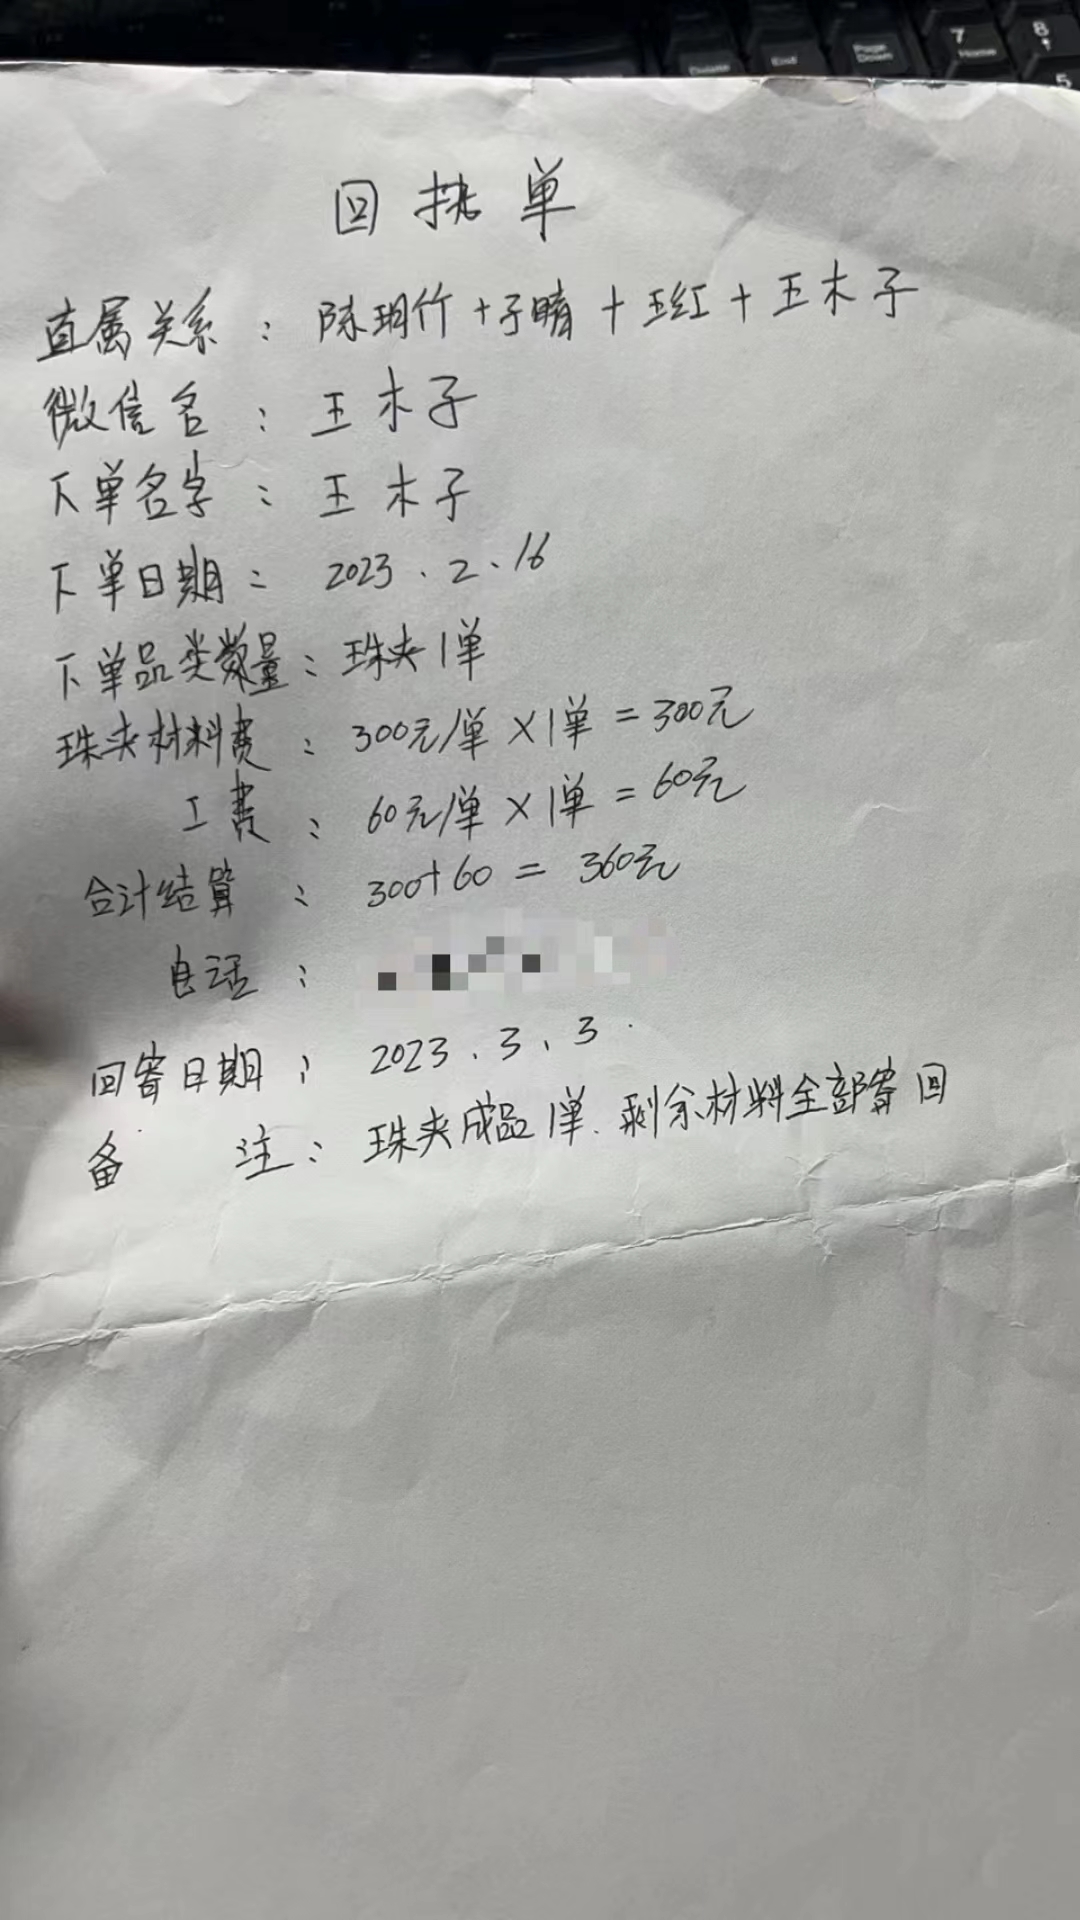 7
Home
8
Delete
End
Page
Down
5
回执单
直属关系：陈玥竹+子晴+王红+王木子
微信名：王木子
下单名字：王木子
下单日期：2023.2.16
下单品类数量：珠夹1单
珠夹材料费：300元/单×1单=300元
工费：60元/单×1单=60元
合计结算：300+60=360元
电话：
回寄日期：2023.3.3.
备注：珠夹成品1单.剩余材料全部寄回